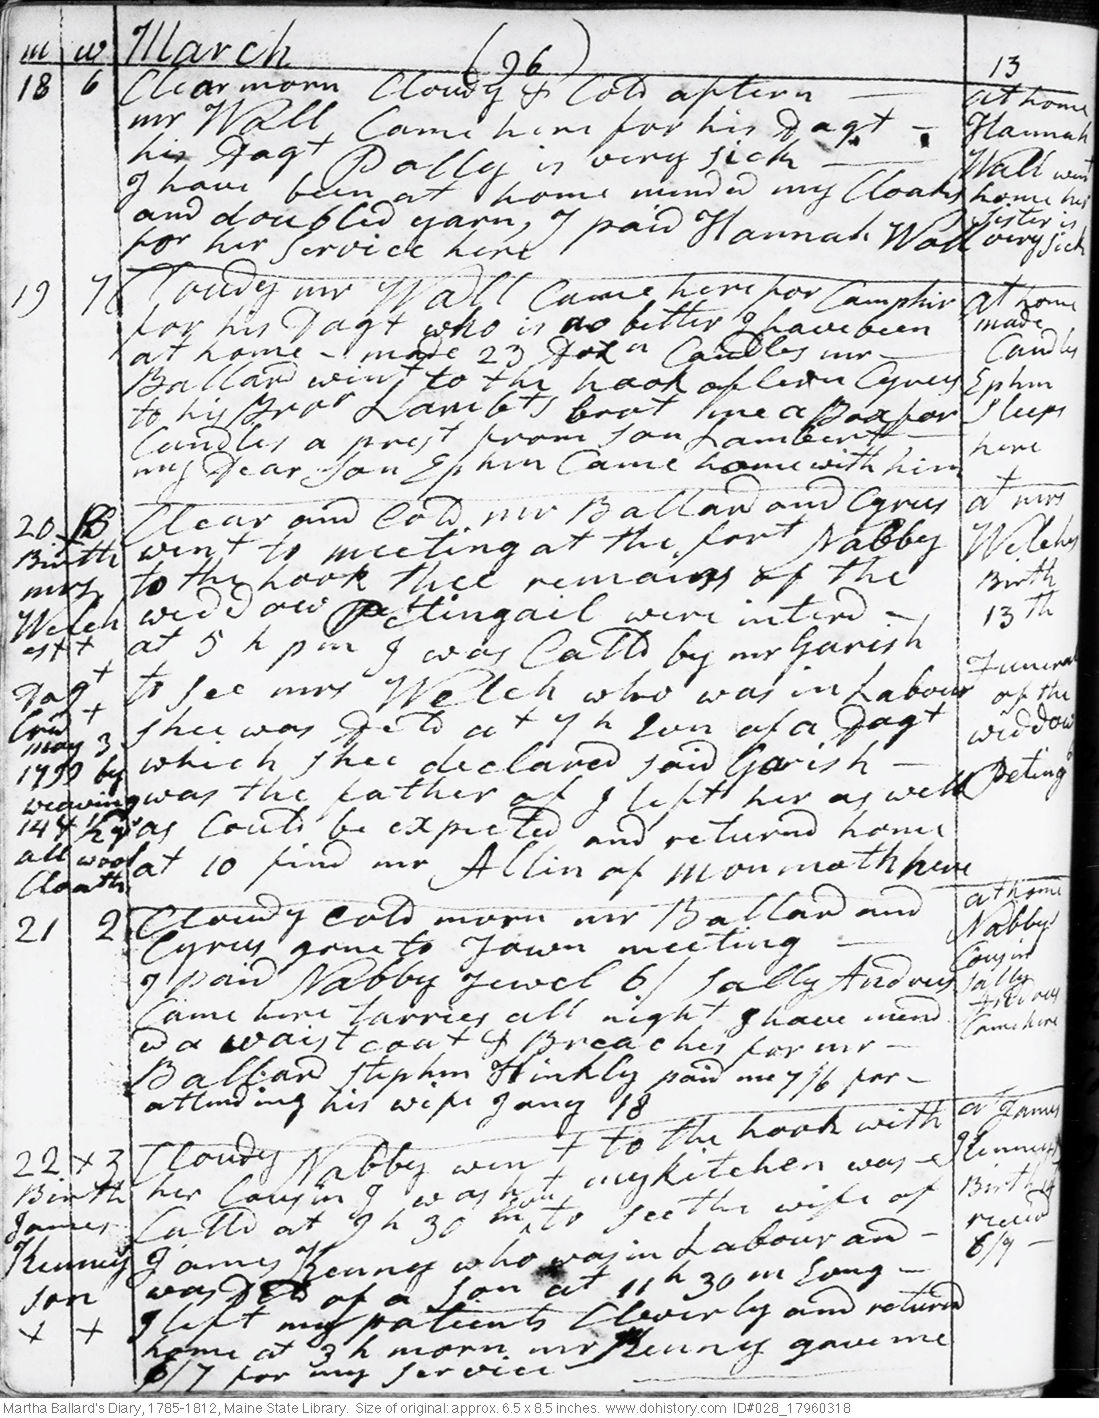 m w March (96) 13
18 6 Clear morn Cloudy & Cold aftern at home
mr Wall Came here for his Dagt Hannah
his Dagt Polly is very sick Wall went
I have been at home mended my Cloaks home her
and doubled yarn, I paid Hannah Wall sister is
for her Service here very sick
19 7 Cloudy mr Wall Came here for Camphir at home
for his Dagt who is no better I have been made
at home - made 23 Dozn Candles mr Candls
Ballard wint to the hook Cyrus Ephm
to his Bror Lambts brot me a Box for Sleeps
Candles a prest from son Lambert here
my Dear Son Ephm Came home with him
20 B Clear and Cold. mr Ballard and Cyrus at mrs
Birth went to meeting at the fort Nabby Welches
mrs to the hook thee remains of the Birth
Welch widdow Pettingail were interd 13th
xt+ at 5 h pm I was Calld by mr Garish
Dagt to see mrs Welch who was in Labour Funeral of the
Crd + shee was Deld at 7 h Evn of a Dagt widdow
may 3 which shee declared said Garish Peting
1799 by was the father of I left her as well
weaving as Could be expected and returnd home
14 at 10 find mr Allin of monmoth here
all wool
Cloath
21 2 Cloudy Cold morn mr Ballard and at home
Cyrus gone to Town meeting Nabby
I paid Nabby Jewel 6/ Sally Andrus Cousin
Came here tarries all night I have mend Sally
d a waistcoat & Breaches for mr Andrus
Ballard Stephn Hinkly paid me 7/6 for Came here
attending his wife Jany 18
22 + 3 Cloudy Nabby went to the hook with at James
Birth her Cousin I washt my kitchen was Kenneys
James Calld at 9 h 30 m to see the wife of Birth
Kenney James Kenney who was in Labour and receivd
son was Deld of a Son at 11 h 30 m Evng 6/7
+ + I left my patients Cleverly and returnd
home at 3 h morn mr Kenney gave me
6/7 for my service
Martha Ballard's Diary, 1785-1812, Maine State Library. Size of original: approx. 6.5 x 8.5 inches. www.dohistory.com ID#028_17960318